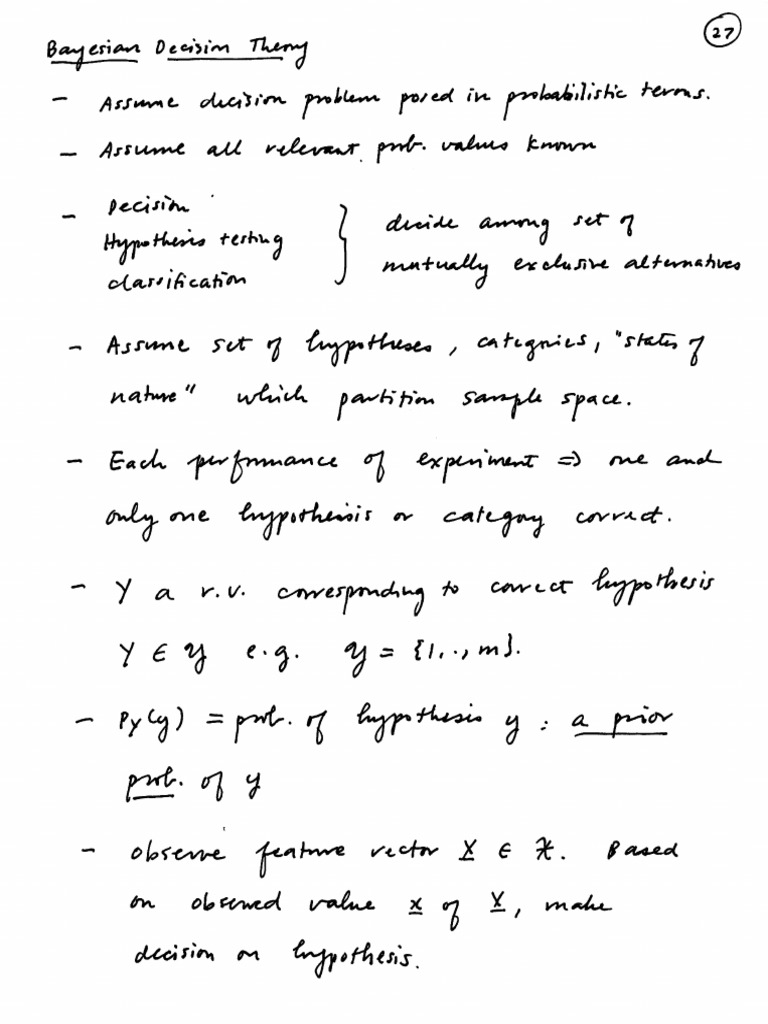 27
Bayesian Decision Theory
- Assume decision problem posed in probabilistic terms.
- Assume all relevant prob. values known
- Decision
Hypothesis testing
classification
} decide among set of
mutually exclusive alternatives
- Assume set of hypotheses, categories, "states of
nature" which partition sample space.
- Each performance of experiment ⇒ one and
only one hypothesis or category correct.
- Y a r.v. corresponding to correct hypothesis
Y ∈ 𝒴 e.g. 𝒴 = {1,..,m}.
- P_Y(y) = prob. of hypothesis y : a prior
prob. of y
- Observe feature vector X ∈ 𝒳. Based
on observed value x of X, make
decision on hypothesis.